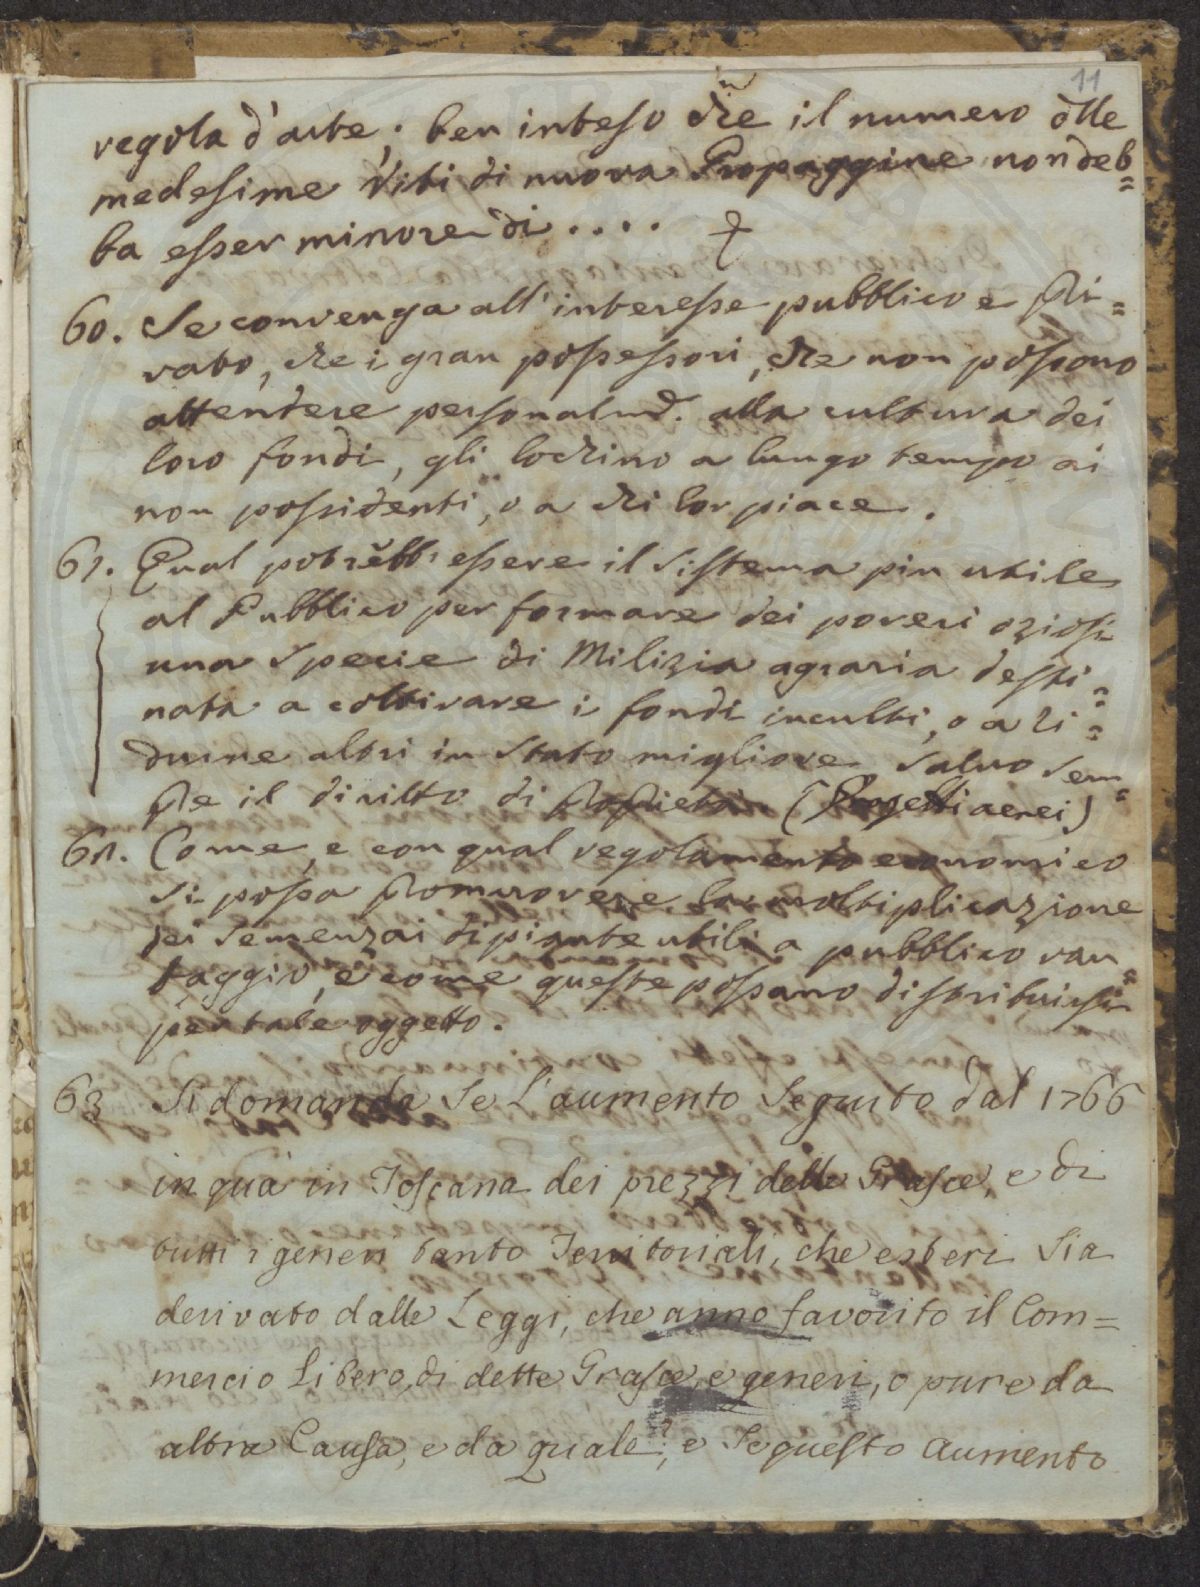 11
regola d'arte; ben inteso che il numero dlle
medesime Viti di nuova Propaggine non deb=
ba esser minore di ....
60. Se convenga all'interesse pubblico e pri=
vato, che i gran possessori, che non possono
attendere personalmd. alla cultura dei
loro fondi, gli lochino a lungo tempo ai
non possidenti, o a chi lor piace.
61. Qual potrebb' essere il sistema piu utile
al Pubblico per formare dei poveri oziosi
una specie di Milizia agraria desti=
nata a coltivare i fondi inculti, o a ri=
durne altri in stato migliore salvo sem=
pre il diritto di proprietà (Progetti aerei)
62. Come, e con qual regolamento economico
si possa promuovere la moltiplicazione
dei semenzai di piante utili a pubblico van=
taggio, e come queste possano distribuirsi
per tale oggetto.
63 Si domanda se l'aumento seguito dal 1766
in quà in Toscana dei prezzi delle Grasce, e di
tutti i generi tanto Territoriali, che esteri sia
derivato dalle Leggi, che anno favorito il Com=
mercio Libero di dette Grasce, e generi, o pure da
altra Causa, e da quale; e se questo aumento